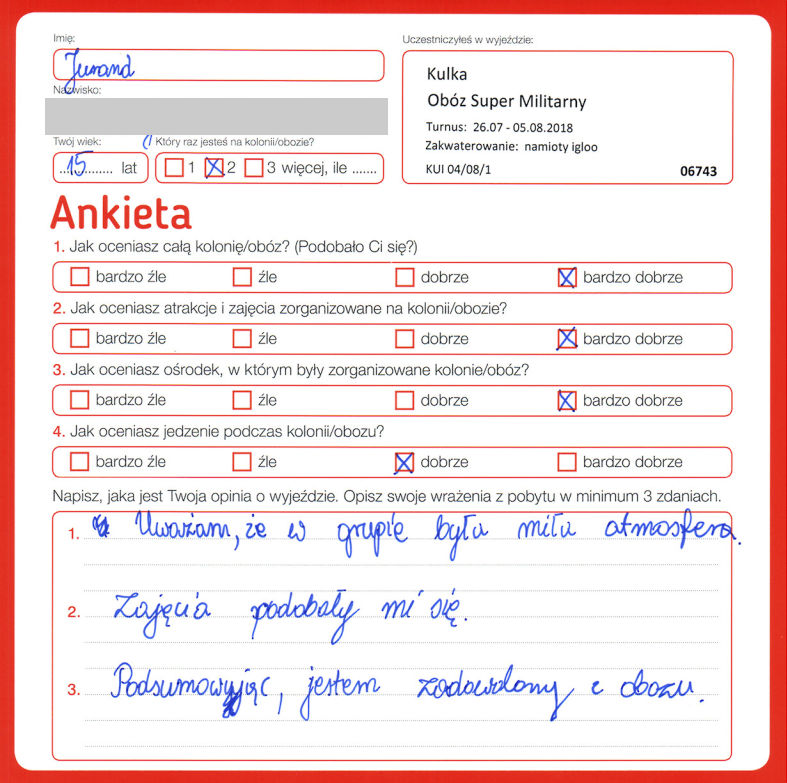 Imię:
Jurand
Nazwisko:
Twój wiek:
Który raz jesteś na kolonii/obozie?
15 lat
1 2 3 więcej, ile .......
Uczestniczyłeś w wyjeździe:
Kulka
Obóz Super Militarny
Turnus: 26.07 - 05.08.2018
Zakwaterowanie: namioty igloo
KUI 04/08/1 06743
Ankieta
1. Jak oceniasz całą kolonię/obóz? (Podobało Ci się?)
bardzo źle źle dobrze bardzo dobrze
2. Jak oceniasz atrakcje i zajęcia zorganizowane na kolonii/obozie?
bardzo źle źle dobrze bardzo dobrze
3. Jak oceniasz ośrodek, w którym były zorganizowane kolonie/obóz?
bardzo źle źle dobrze bardzo dobrze
4. Jak oceniasz jedzenie podczas kolonii/obozu?
bardzo źle źle dobrze bardzo dobrze
Napisz, jaka jest Twoja opinia o wyjeździe. Opisz swoje wrażenia z pobytu w minimum 3 zdaniach.
1. Uważam, że w grupie była miła atmosfera.
2. Zajęcia podobały mi się.
3. Podsumowując, jestem zadowolony z obozu.